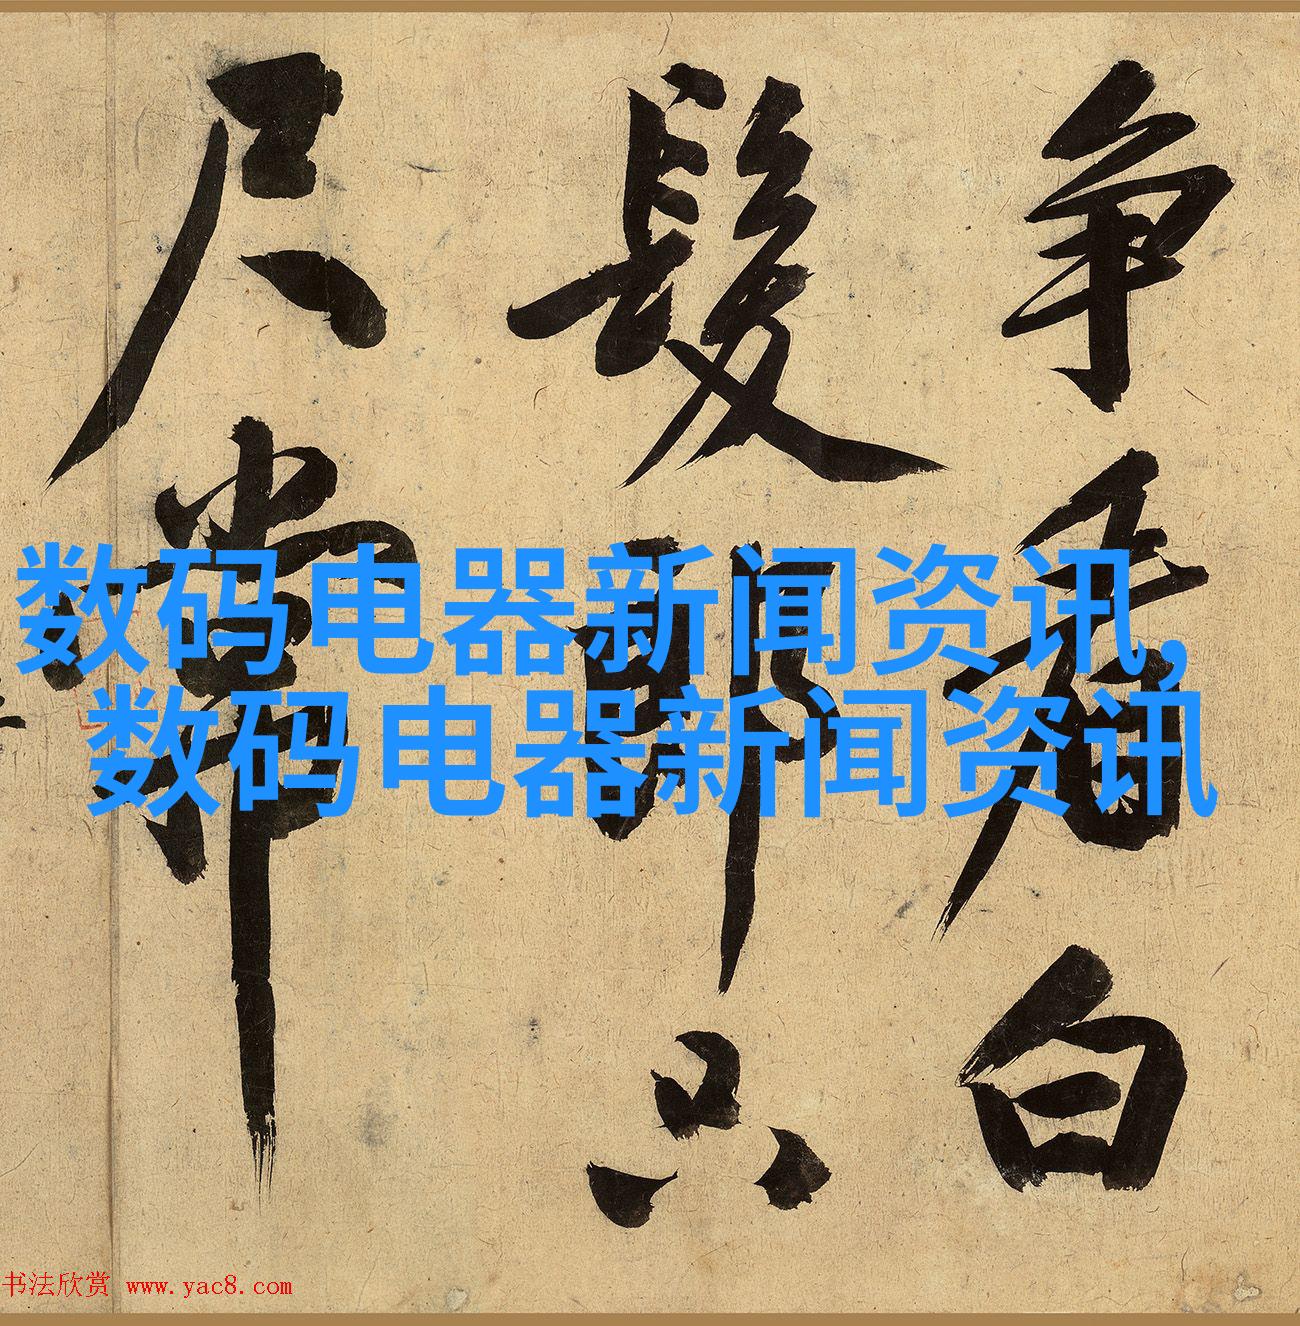 争看白
髮郎只
尺常
数码电器新闻资讯,
数码电器新闻资讯
书法欣赏 www.yac8.com